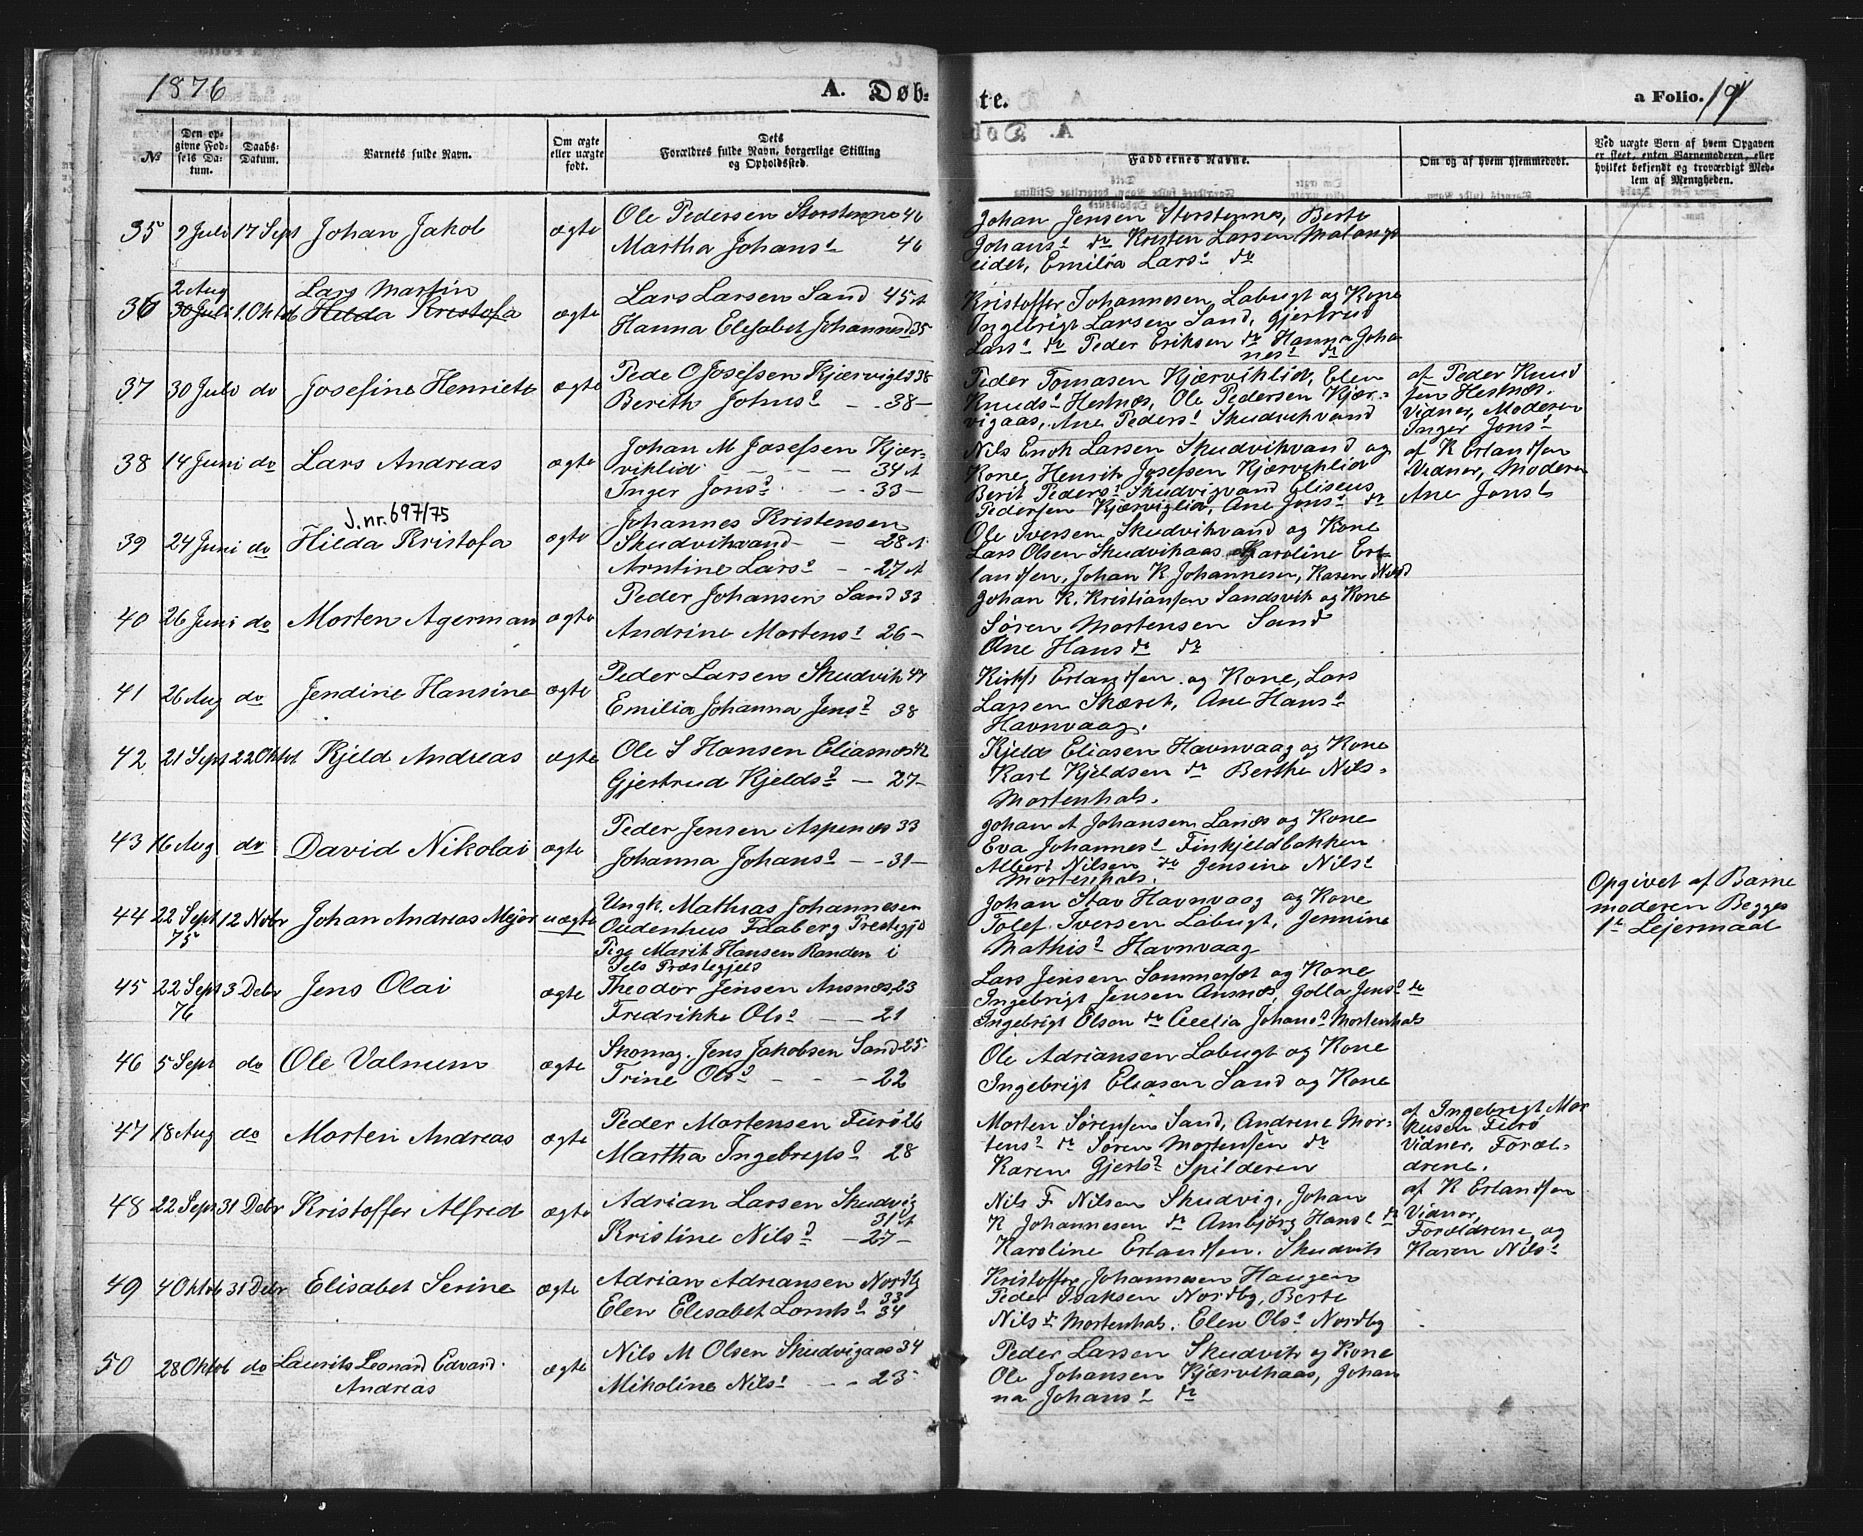 1876 A. Døb-
te. a Folio. 19
№ Den op-
givne Fød-
sels Da-
tum. Daabs-
Datum. Barnets fulde Navn. Om ægte
eller uægte
født. Dets
Forældres fulde Navn, borgerlige Stilling
og Opholdssted.
Faddernes Navne. Om og af hvem hjemmedøbt. Ved uægte Børn af hvem Opgaven
er skeet, enten Barnemoderen, eller
hvilket bekjendt og troværdigt Med-
lem af Menigheden.
35 9 Juli 17 Sept Johan Jakob ægte Ole Pedersen Storstennes 46
Martha Johans? 46
Johan Jensen Storstennes, Berte
Johans? do Kristen Larsen Malangs
eidet, Emilia Lars? do
36 2 Aug
30 Juli 1. Oktob Lars Martin
Hilda Kristofa ægte Lars Larsen Sand 45 A
Hanna Elisabet Johannesd 35
Kristoffer Johannesen Labugt og Kone
Ingebrigt Larsen Sand, Gjertrud
Lars? do Peder Eriksen do Hanna Joha
nes? do
37 30 Juli do Josefine Henriete ægte Pede O Josefsen Kjærvigld 38
Berith Johns? - 38 -
Peder Tomasen Kjærviklid, Elen
Knuds? Hestnæs, Ole Pedersen Kjær-
vigaas, Ane Peders? Skudvikvand
af Peder Knud
sen Hestnæs.
Vidner, Moderen
Inger Jons?
38 14 Juni do Lars Andreas ægte Johan M Josefsen Kjær-
viklid - - - 34 A
Inger Jons? - - 33 -
Nils Enok Larsen Skudvikvand og
Kone, Henrik Josefsen Kjærviklid
Berit Peders? Skudvigvand Eliseus
Pedersen Kjærviglid, Ane Jons? do
af K Erlandsen
Vidner, Moderen
Ane Jons?
J.nr. 697/75
39 24 Juni do Hilda Kristofa ægte Johannes Kristensen
Skudvikvand - - 28 A
Arntine Lars? - - 27 A
Ole Iversen Skudvikvand og Kone
Lars Olsen Skudvikaas Karoline Erl-
landsen, Johan K Johannesen, Karen Nord
40 26 Juni do Morten Agerman ægte Peder Johansen Sand 33
Andrine Mortens? 26 -
Johan K. Kristiansen Sandsvik og Kone
Søren Mortensen Sand
Ane Hans do do
41 26 Aug do Jendine Hansine ægte Peder Larsen Skudvik 47
Emilia Johanna Jens? 38
Erlandsen og Kone, Lars
Larsen Skæret, Ane Hans?
Havnvaag.
42 21 Sept 22 Oktob Kjeld Andreas ægte Ole S Hansen Eliasnes 42
Gjertrud Kjelds? - 27 -
Kjeld Eliasen Havnvaag og Kone
Karl Kjeldsen do Berthe Nils-
Mortenhals.
43 16 Aug do David Nikolai ægte Peder Jensen Aspenæs 33
Johanna Johans? - - 31 -
Johan A Johansen Lanæs og Kone
Eva Johannes? Finkjeldbakken
Albert Nilsen do Jensine Nils?
Mortenhals.
44 22 Sept
75 12 Nobr Johan Andreas Mejer uægte Ungk. Mathias Johannesen
Oudenhus Faaberg Prestegjd
Pige Marit Hansen Randen i
Sels Præstegjeld
Johan Stav Havnvaag og Kone
Tolef Iversen Labugt, Jermine
Mathis? Havnvaag
Opgivet af Barne
moderen Begges
1te Lejermaal
45 22 Sept
76 3 Debr Jens Olai ægte Theodor Jensen Ansnæs, 23
Fredrikke Ols? - - 21
Lars Jensen Sommersæt og Kone
Ingebrigt Jensen Ansnæs, Golla Jens? do
Ingebrigt Olsen do Cecelia Johans? Mortenhals
46 5 Sept do Ole Valmum ægte Skomag. Jens Jakobsen Sand 25
Trine Ols? - - - 22
Ole Adriansen Labugt og Kone
Ingebrigt Eliasen Sand og Kone
47 18 Aug do Morten Andreas ægte Peder Mortensen Furö 26
Martha Ingebrigts? 28
Morten Sørensen Sand, Andrene Mor-
tens? do Søren Mortensen do
Karen Gjerts? Spilderen
af Ingebrigt Mar
kusen Furö
Vidner, Foræl-
drene.
48 22 Sept 31 Debr Kristoffer Alfred ægte Adrian Larsen Skudvig
31 A
Kristine Nils? - 27 -
Nils F Nilsen Skudvig, Johan
K Johannesen do Ambjörg Hans? do
Karoline Erlandsen. Skudvik
af K Erlandsen
Vidner,
Foroldrene, og
Karen Nils?
49 4 Oktob 31 Debr Elisabet Serine ægte Adrian Adriansen Nordby
33
Elen Elesabet Lornts? 34
Kristoffer Johannesen Haugen
Peder Isaksen Nordby, Berte
Nils do Mortenhals. Elen Ols? Nordby
50 28 Oktob do Laurits Leonard Edvard
Andreas ægte Nils M Olsen Skudvigaas 34
Mikoline Nils? - - 23
Peder Larsen Skudvik og Kone
Ole Johansen Kjærvikaas, Johan
na Johans? do